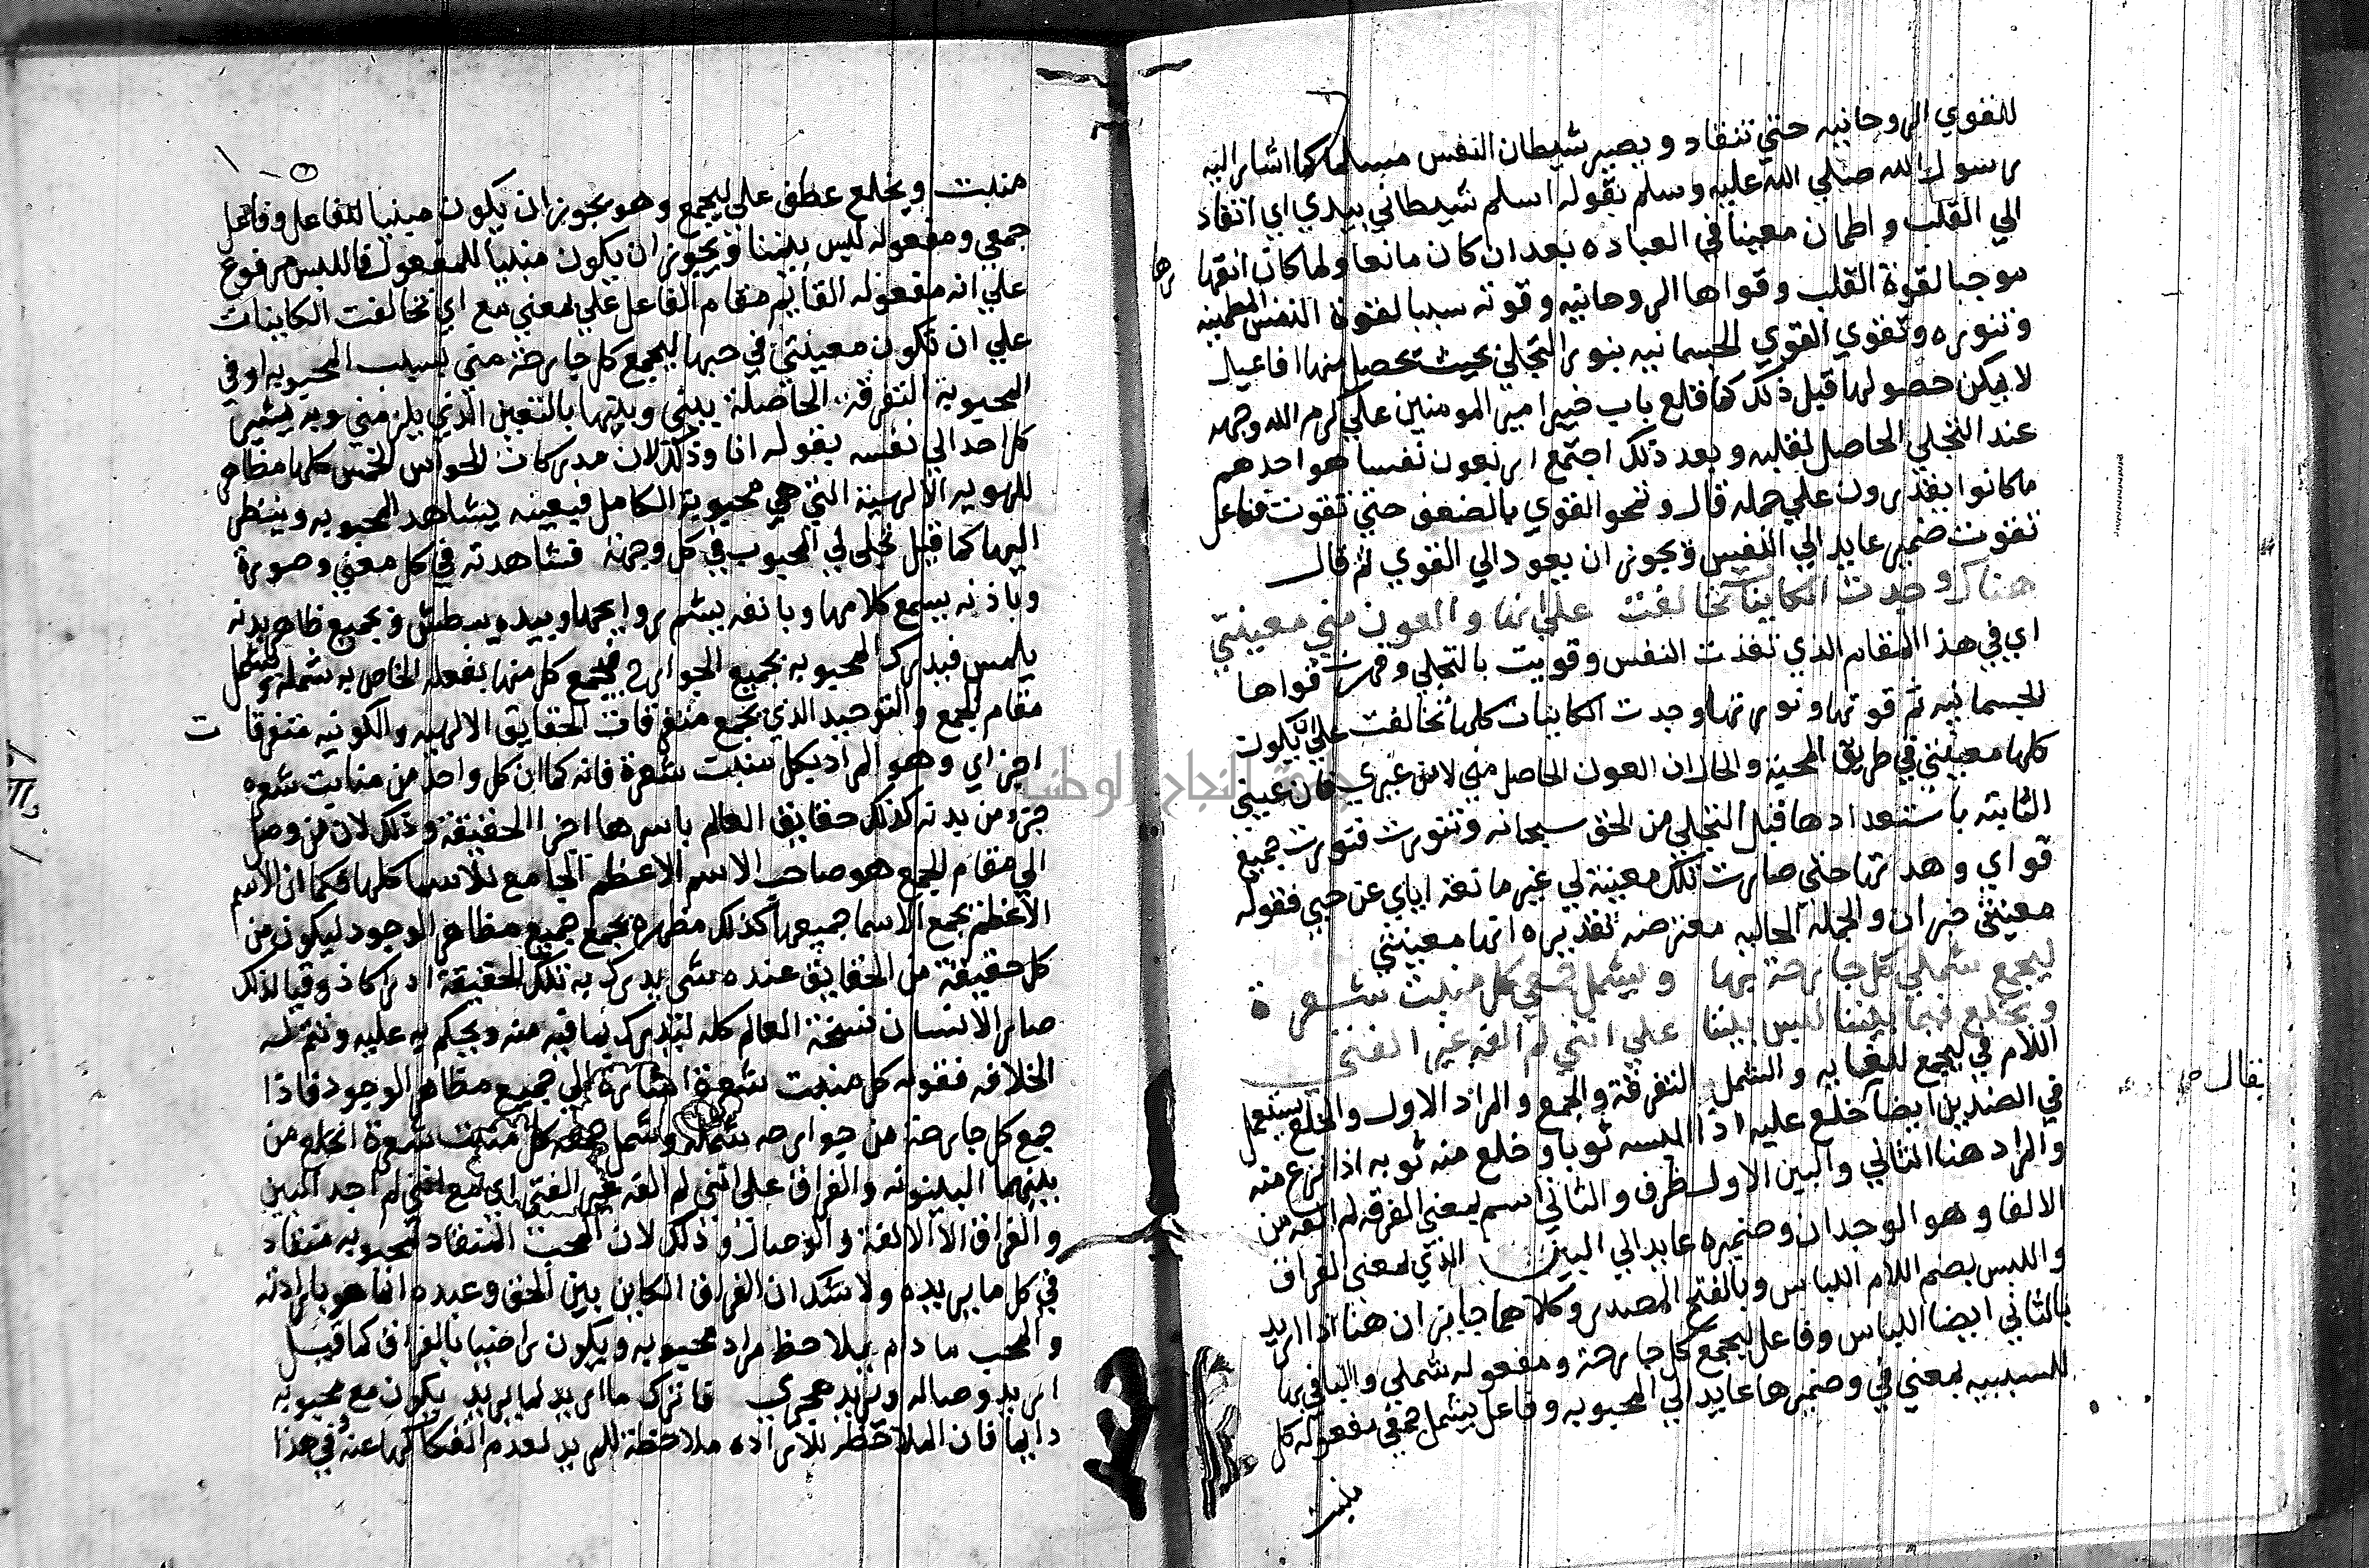 للقوي الروحانيه حتي تنقاد و يصير شيطان النفس مسلما كما اشار اليه
رسول الله صلي الله عليه وسلم بقوله اسلم شيطاني بيدي اي انقاد
الي القلب و اطمان معينا في العباده بعد ان كان مانعا ولما كان انقها
رها
موجبا لقوة القلب وقواها الروحانيه وقوته سببا لقوة النفس المطمينه
وتنوره وتقوي القوي الجسمانيه بنور التجلي بحيث تحصل منها افاعيل
لا يمكن حصولها قبل ذلك كما قلع باب خيبر امير المومنين علي كرم الله وجهه
عند التجلي الحاصل لقلبه و بعد ذلك اجتمع اربعون نفسا هو احدهم
ما كانوا يقدرون علي حمله قال و نحو القوي بالضعف حتي تقوت فاعل
تقوت ضمير عايد الي النفس ويجوز ان يعود الي القوي ثم قال
هناك وجدت الكاينات تحالفت علي انها والعون مني معينتي
اي في هذا المقام الذي نفذت النفس وقويت بالتجلي و قواها
الجسمانيه ثم قوتها و نورتها وجدت الكاينات كلها تحالفت علي ان تكون
كلها معينتي في طريق المحبة والحال ان العون الحاصل مني لا من غيري فان عيني
الثابته باستعدادها قبل التجلي من الحق سبحانه وتنورت فتنورت جميع
قواي و هدتها حتي صارت تلك معينة لي غير مانعة اياي عن حبي فقوله
معينتي خبر ان والجملة الحاليه معترضه تقديره انها معينتي
ليجمع شملي كل جارحة بها و يشمل جمعي كل منبت شعرة
و يخلع فيما بيننا لبس بيننا علي انني لم الفه غير الفتي
اللام في ليجمع للغايه و الشمل التفرقة والجمع والمراد الاول والخلع يستعمل
في الضدين ايضا خلع عليه اذا البسه ثوبا و خلع منه ثوبه اذا نزع منه
والمراد هنا الثاني والبين الاول ظرف والثاني اسم بمعني الفرقه لم الفه من
الالفا و هو الوجدان وضميره عايد الي البين الذي بمعني الفراق
واللبس بضم اللام اللباس وبالفتح المصدر وكلاهما جايزان هنا اذا اريد
بالثاني ايضا اللباس وفاعل ليجمع كل جارحة و مفعوله شملي والبا في بها
للسببيه بمعني في وضميرها عايد الي المحبوبه وفاعل يشمل جمعي مفعوله كل
منبت
يقال
منبت ويخلع عطف علي ليجمع وهو يجوز ان يكون مبنيا للفاعل وفاعل
جمعي ومفعوله لبس بيننا ويجوز ان يكون مبنيا للمفعول فاللبس مرفوع
علي انه مفعوله القايم مقام الفاعل علي بمعني مع اي تحالفت الكاينات
علي ان تكون معينتي في حبها ليجمع كل جارحة مني بسبب المحبوبه او في
المحبوبة التفرقة الحاصلة بيني وبينها بالتعين الذي يلزمني وبه يشير
كل احد الي نفسه بقوله انا وذلك لان مدركات الحواس الخمس كلها مظاهر
للهويه الالهية التي هي محبوبة الكامل فبعينه يشاهد المحبوبه وينظر
اليها كما قيل تجلي لي المحبوب في كل وجهة فشاهدته في كل معني وصورة
وباذنه يسمع كلامها و بانفه يشم روايحها وبيده يبطش و بجميع ظاهر بدنه
يلمس فيدرك المحبوبه بجميع الجوارح فيجمع كل منها بفعله الخاص به شمله ويشمل
مقام الجمع والتوحيد الذي يجمع متفرقات الحقايق الالهيه والكونيه متفرقات
اجزاي وهو المراد بكل منبت شعرة فانه كما ان كل واحد من منابت شعره
جزء من بدنه كذلك حقايق العالم باسرها اجزا الحقيقة وذلك لان من وصل
الي مقام الجمع هو صاحب الاسم الاعظم الجامع للاسما كلها فكما ان الاسم
الاعظم يجمع الاسما جميعها كذلك مظهره يجمع جميع مظاهر الوجود ليكون من
كل حقيقة من الحقايق عنده شي يدرك به تلك الحقيقة ادراكا ذوقيا لذلك
صار الانسان نسخة العالم كله ليدرك بما فيه منه ويحكم به عليه و تتم له
الخلافه فقوله كل منبت شعرة اشارة الي جميع مظاهر الوجود فاذا
جمع كل جارحة من جوارحه شمله وشمل جمعه كل منبت شعرة انخلع من
بينهما البينونه والفراق علي انني لم الفه غير الفتي اي مع انني لم اجد البين
والفراق الا الالفة والوصال و ذلك لان المحب المنقاد لمحبوبه منقاد
في كل ما يريده ولا شك ان الفراق الكاين بين الحق وعبده انما هو بارادته
والمحب ما دام يلاحظ مراد محبوبه ويكون راضيا بالفراق كما قيل
اريد وصاله ويريد هجري فاترك ما اريد لما يريد يكون مع محبوبه
دايما فان الملاحظ للاراده ملاحظة للمريد لعدم انفكاكها عنه وفي هذا
جامعة النجاح الوطنية